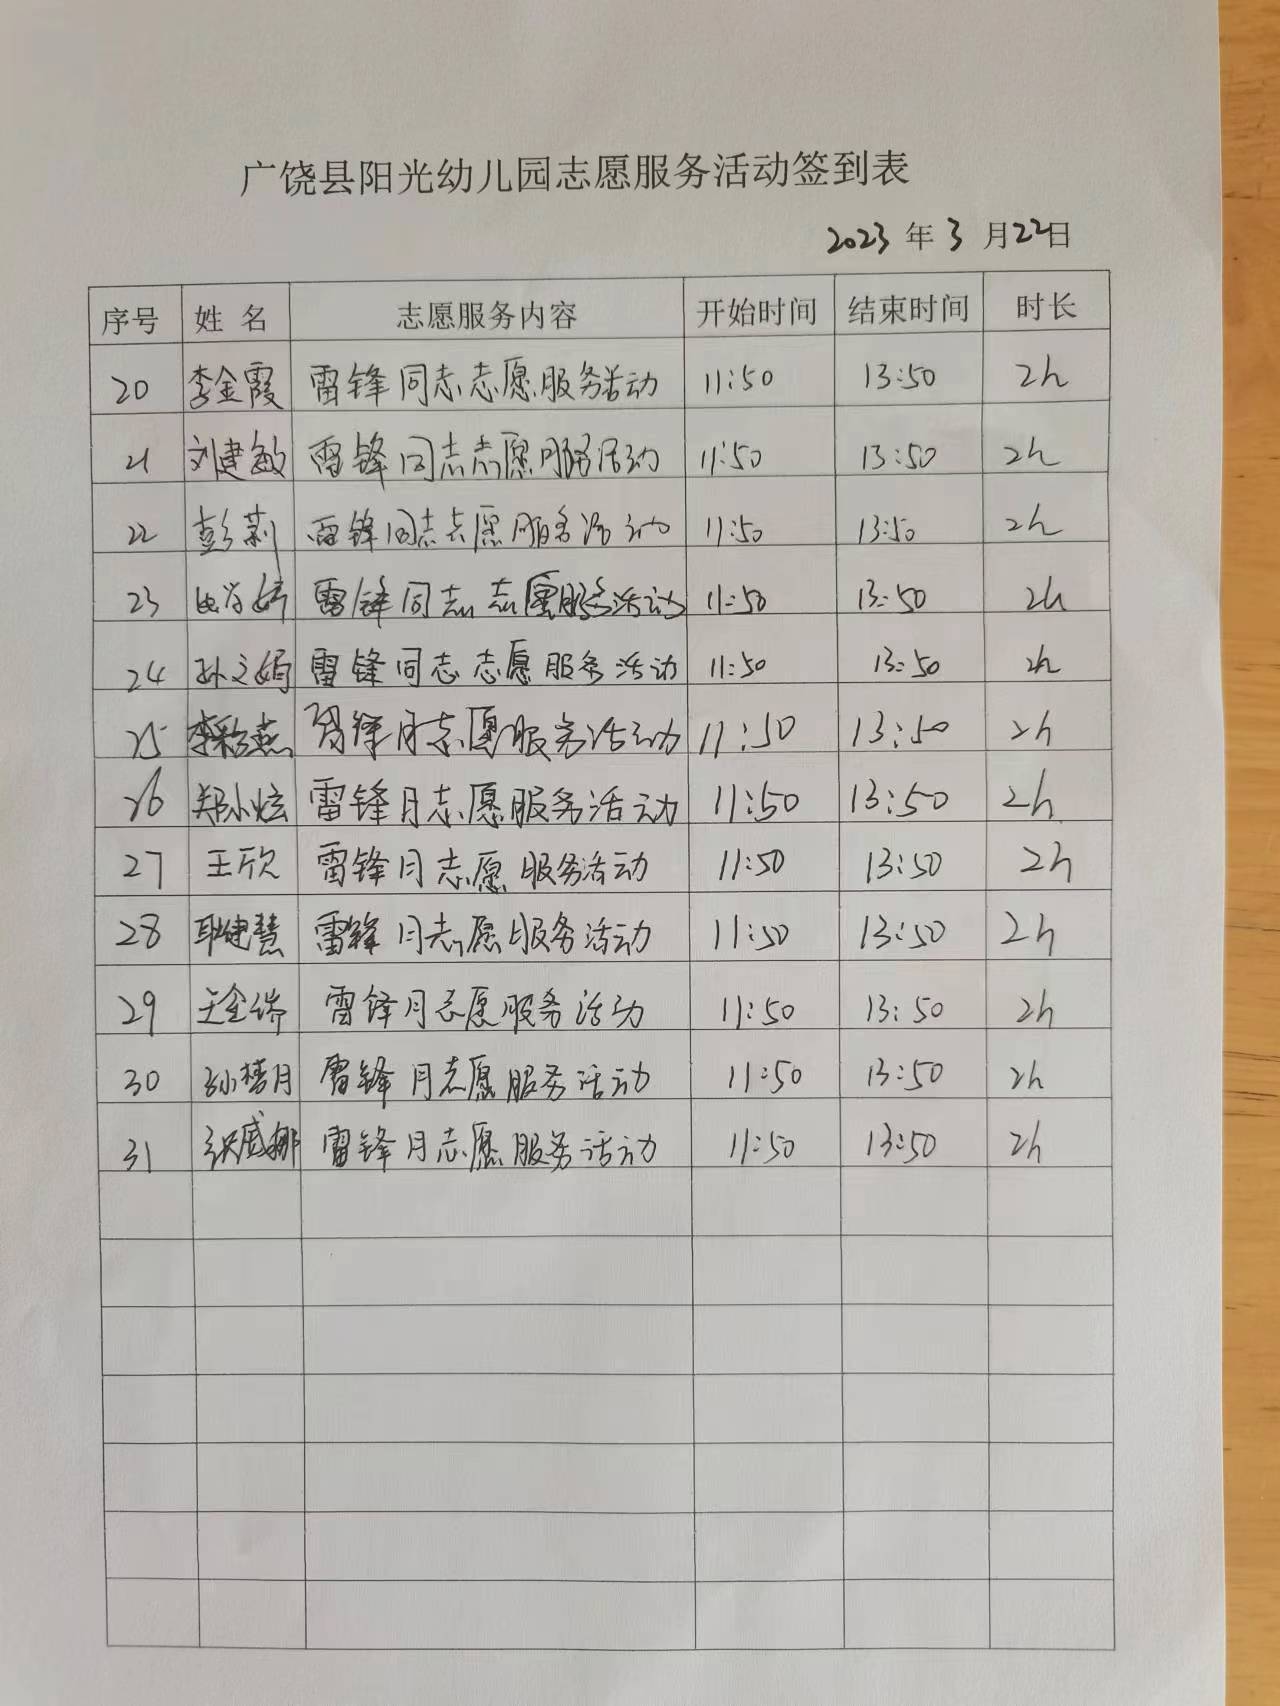 广饶县阳光幼儿园志愿服务活动签到表
2023 年 3 月 22日
序号 姓 名 志愿服务内容 开始时间 结束时间 时长
20 李金霞 雷锋同志志愿服务活动 11:50 13:50 2h
21 刘建敏 雷锋同志志愿服务活动 11:50 13:50 2h
22 彭莉 雷锋同志志愿服务活动 11:50 13:50 2h
23 雷锋同志志愿服务活动 11:50 13:50 2h
24 孙文娟 雷锋同志志愿服务活动 11:50 13:50 2h
25 李彩燕 雷锋月志愿服务活动 11:50 13:50 2h
26 郑小炫 雷锋月志愿服务活动 11:50 13:50 2h
27 王欣 雷锋月志愿服务活动 11:50 13:50 2h
28 耿建慧 雷锋月志愿服务活动 11:50 13:50 2h
29 雷锋月志愿服务活动 11:50 13:50 2h
30 孙梦月 雷锋月志愿服务活动 11:50 13:50 2h
31 雷锋月志愿服务活动 11:50 13:50 2h